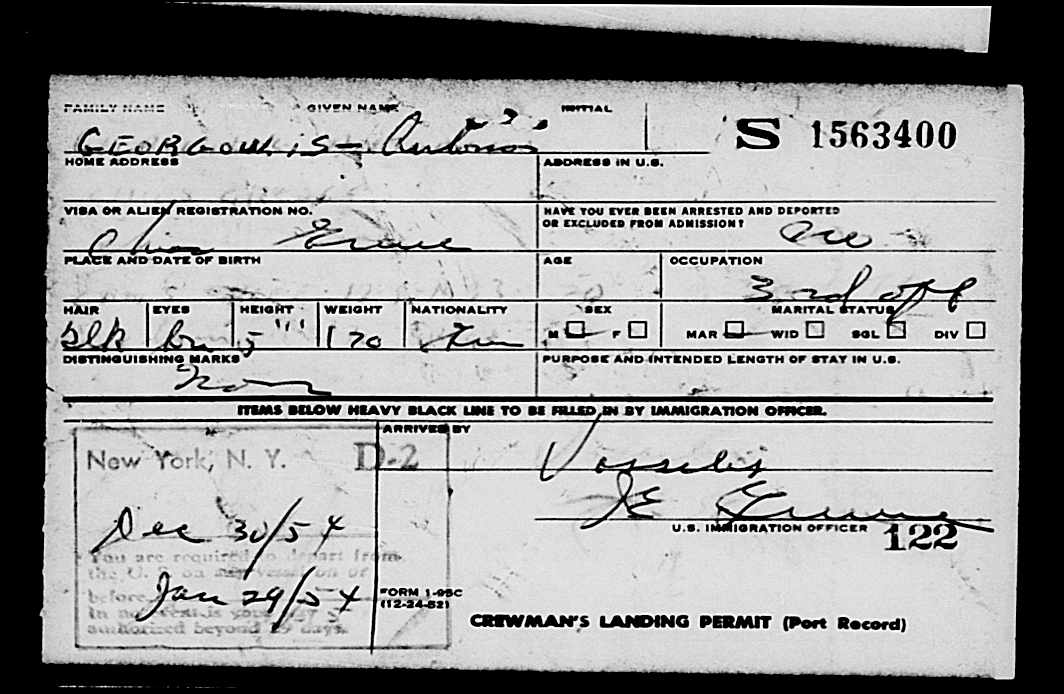 FAMILY NAME GIVEN NAME INITIAL
GEORGOULIS - Antonios
S 1563400
HOME ADDRESS ADDRESS IN U.S.
VISA OR ALIEN REGISTRATION NO. HAVE YOU EVER BEEN ARRESTED AND DEPORTED
OR EXCLUDED FROM ADMISSION?
Chios Greece no
PLACE AND DATE OF BIRTH AGE OCCUPATION
3rd off
HAIR EYES HEIGHT WEIGHT NATIONALITY SEX MARITAL STATUS
blk br 5 170 M F MAR WID SGL DIV
DISTINGUISHING MARKS PURPOSE AND INTENDED LENGTH OF STAY IN U.S.
ITEMS BELOW HEAVY BLACK LINE TO BE FILLED IN BY IMMIGRATION OFFICER.
ARRIVED BY
New York, N. Y. D-2
Vasselis
U.S. IMMIGRATION OFFICER 122
Dec 30/54
You are required to depart from
the U. S. on any vessel on or
before Jan 29/54
In no event is your stay
authorized beyond 29 days.
FORM I-95C
(12-24-52)
CREWMAN'S LANDING PERMIT (Port Record)